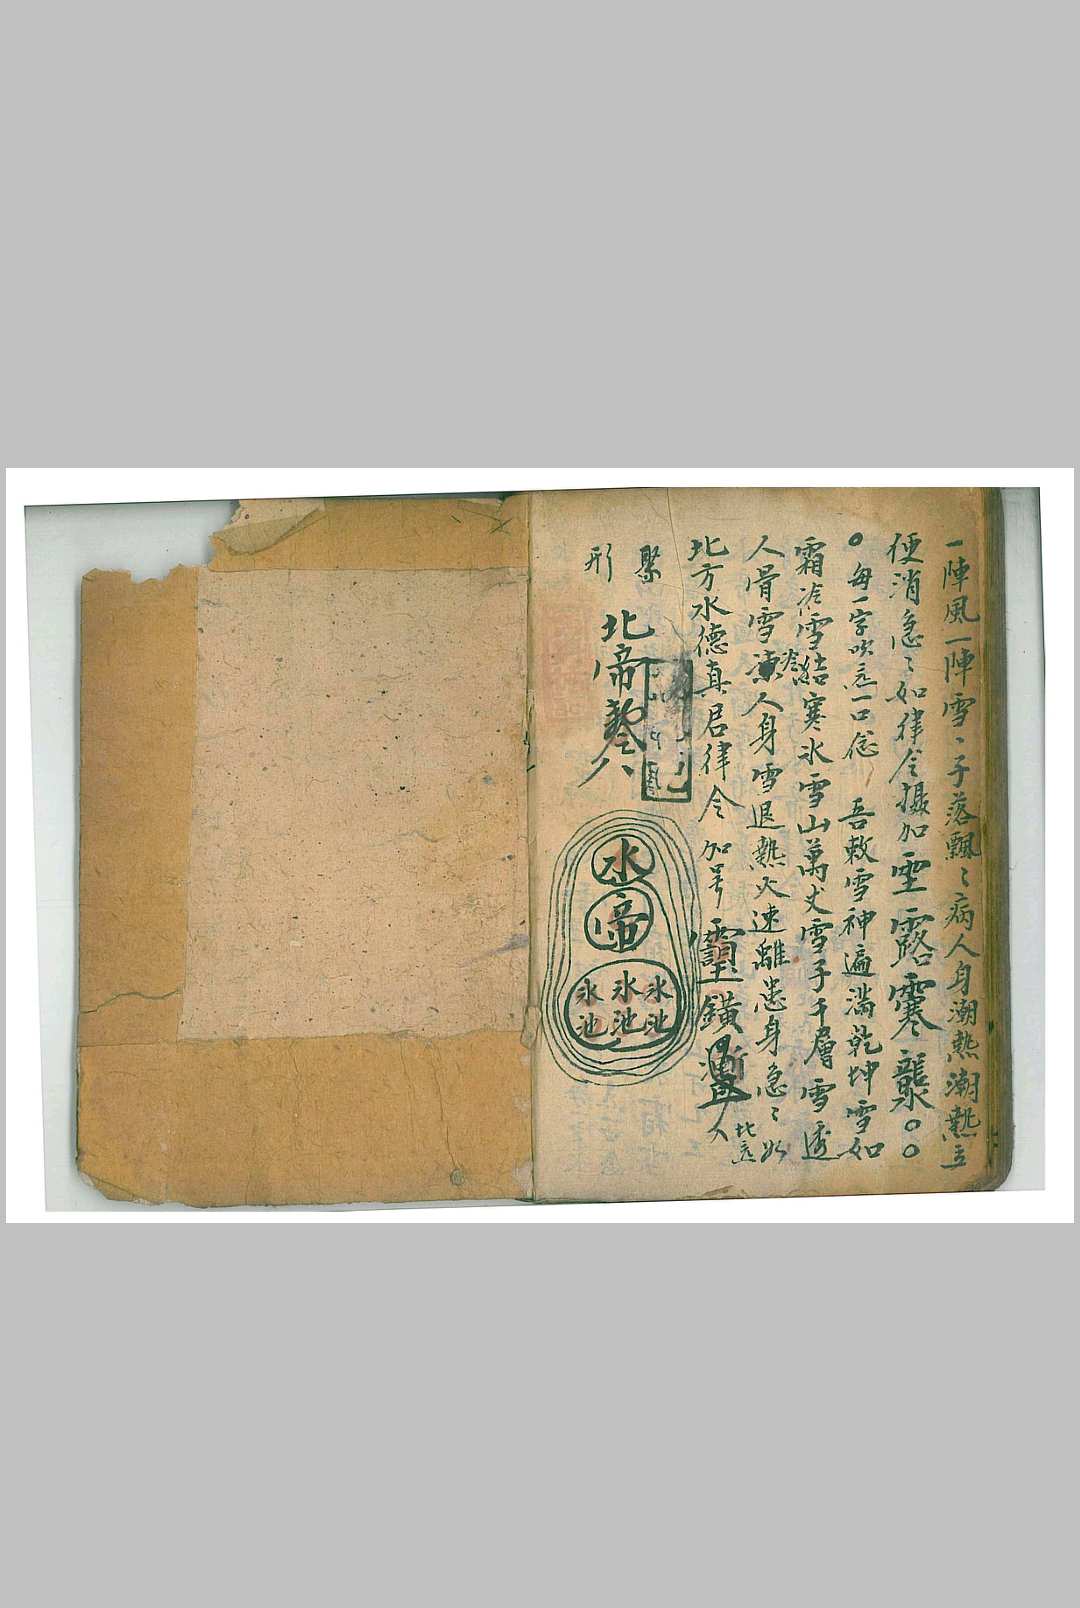 一陣風一陣雪〻子落飄〻病人身潮熱潮熱立
便消急〻如律令攝加  露    。。
。每一字吹  一口 吾敕雪神遍滿乾坤雪如
霜冷雪結寒氷雪山萬丈雪子千層雪透
人骨雪凍人身雪退熱火速離患身急〻如
北方水德真君律令加号
聚形
北帝敕
水
帝
氷池 氷池 氷池